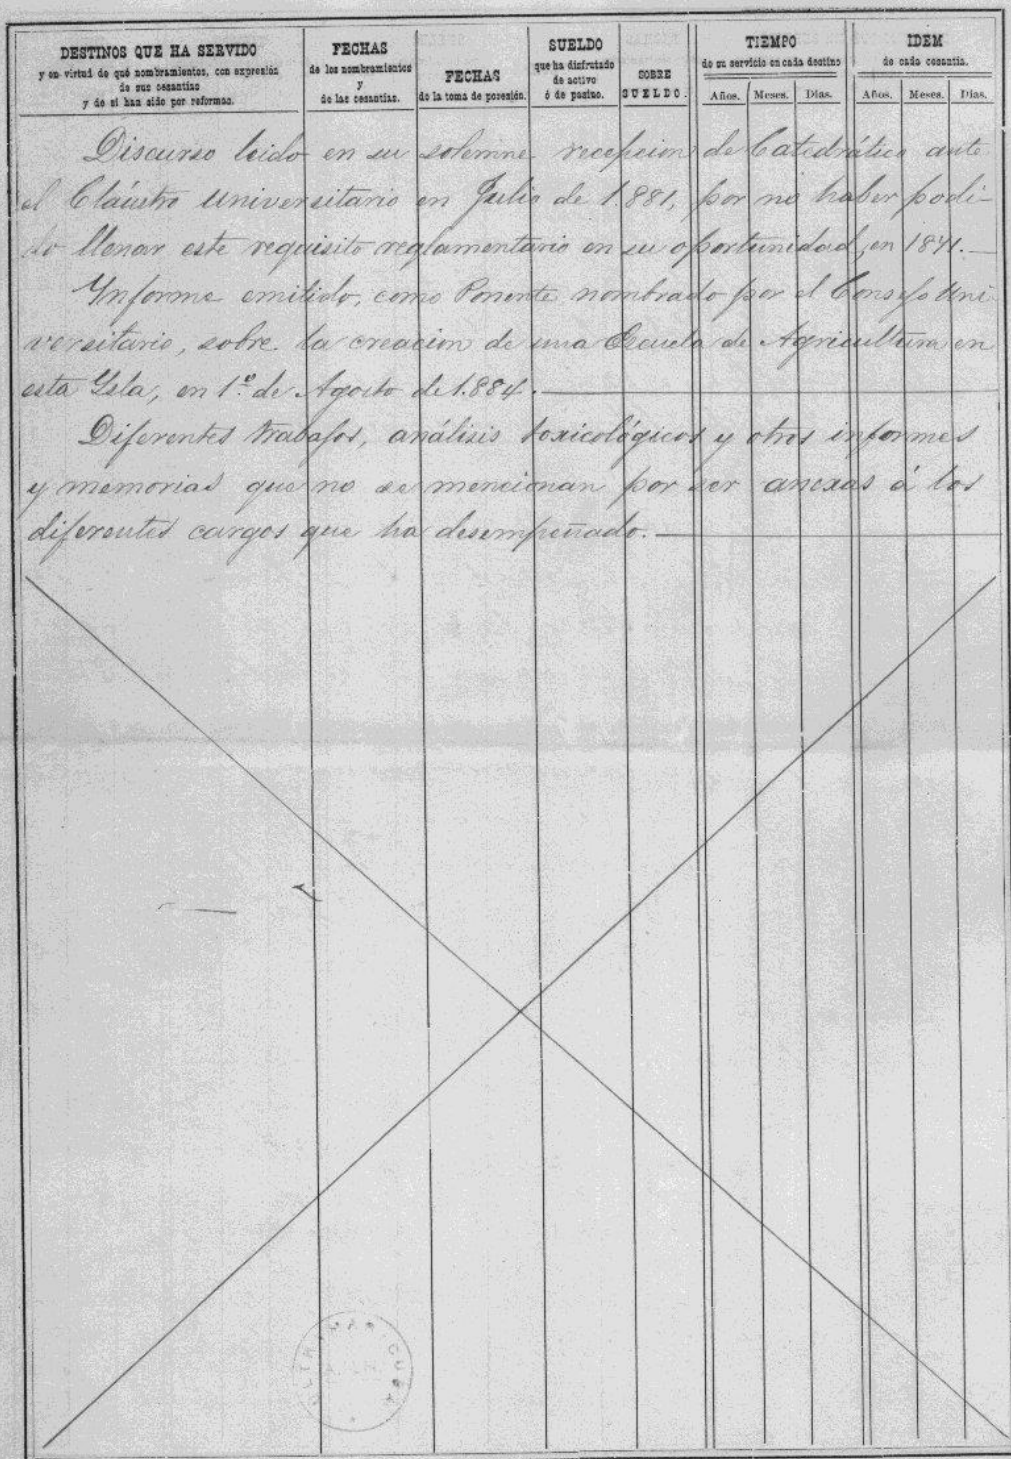 DESTINOS QUE HA SERVIDO
y en virtud de qué nombramientos, con expresión
de sus cesantías
y de si han sido por reformas.
FECHAS
de los nombramientos
y
de las cesantías.
FECHAS
de la toma de posesión.
SUELDO
que ha disfrutado
de activo
ó de pasivo.
SOBRE
SUELDO.
TIEMPO
de su servicio en cada destino
Años. Meses. Dias.
IDEM
de cada cesantía.
Años. Meses. Dias.
Discurso leido en su solemne recepcion de Catedrático ante
el Cláustro Universitario en Julio de 1.881, por no haber podi-
do llenar este requisito reglamentario en su oportunidad, en 1871.
Informe emitido, como Ponente nombrado por el Consejo Uni
versitario, sobre la creacion de una Escuela de Agricultura en
esta Isla, en 1º de Agosto de 1.884.
Diferentes trabajos, análisis toxicológicos y otros informes
y memorias que no se mencionan por ser anexas á los
diferentes cargos que ha desempeñado.